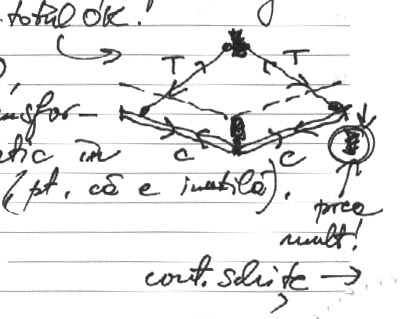 totul OK!
T T
nsfor-
atic în
C C
(pt. că e inutilă).
prea
mult!
cont. schițe →